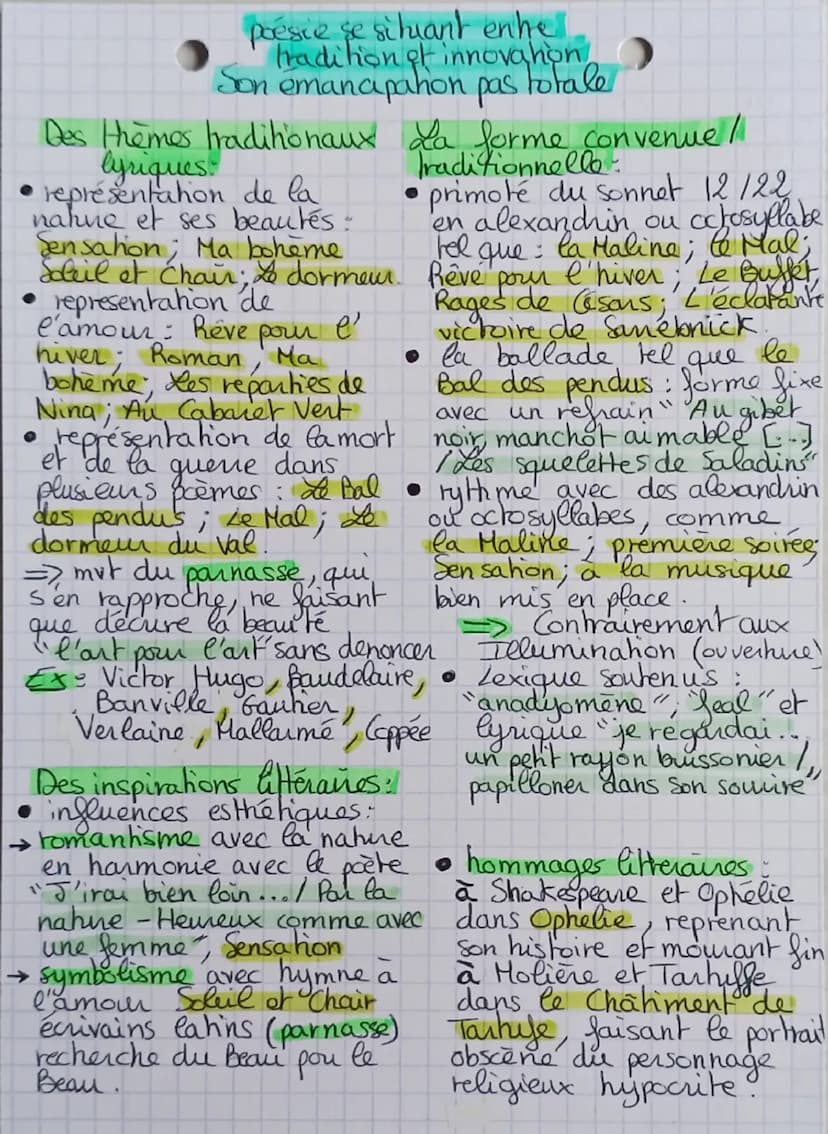 poésie se situant entre
tradition et innovation
Son émancapation pas totale
Des thèmes traditionaux
lyriques:
• représentation de la
nature et ses beautés :
Sensation ; Ma bohème
Soleil et Chair ; Le dormeur.
• representation de
l'amour : Rêve pour l'
hiver ; Roman ; Ma
bohème ; Les reparties de
Nina ; Au Cabaret Vert
• représentation de la mort
et de la guerre dans
plusieurs poèmes : Le Bal
des pendus ; Le Mal ; Le
dormeur du Val.
=> mvt du parnasse, qui
s'en rapproche, ne faisant
que décrire la beauté
"l'art pour l'art" sans denoncer
Ex : Victor Hugo, Baudelaire,
Banville, Gautier,
Verlaine, Mallarmé, Coppée
Des inspirations littéraires :
• influences esthétiques :
→ romantisme avec la nature
en harmonie avec le poète
"J'irai bien loin... / Par la
nature - Heureux comme avec
une femme", Sensation
→ symbolisme avec hymne à
l'amour Soleil et Chair
écrivains latins (parnasse)
recherche du Beau pou le
Beau.
La forme convenue /
traditionnelle :
• primoté du sonnet 12/22
en alexandrin ou octosyllabe
tel que : la Maline ; le Mal ;
Rêve pour l'hiver ; Le Buffet,
Rages de Césars ; L'éclatante
victoire de Sarrebrück.
• la ballade tel que le
Bal des pendus : forme fixe
avec un refrain "Au gibet
noir, manchot aimable [...]
/ Les squelettes de Saladins"
• rythme avec des alexandrin
ou octosyllabes, comme
la Maline ; première soirée ;
Sensation ; à la musique
bien mis en place.
=> Contrairement aux
Illumination (ouverture)
• Lexique soutenus :
"anadyomène", "séal" et
lyrique "je regardai..
un petit rayon buissonier /
papilloner dans son sourire"
• hommages litteraires :
à Shakespeare et Ophélie
dans Ophelie, reprenant
son histoire et mourant fin
à Molière et Tartuffe
dans le Châtiment de
Tartufe, faisant le portrait
obscène du personnage
religieux hypocrite.